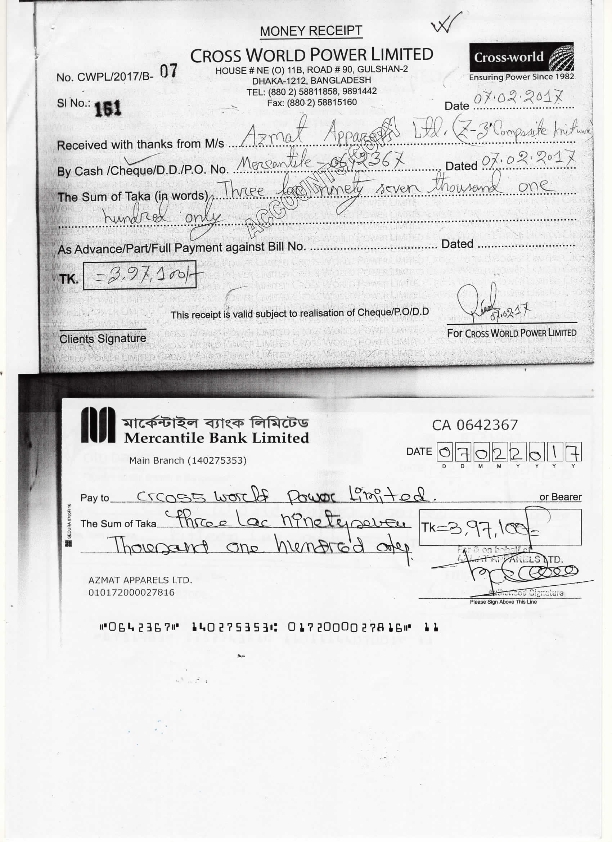 MONEY RECEIPT
CROSS WORLD POWER LIMITED
HOUSE # NE (O) 11B, ROAD # 90, GULSHAN-2
DHAKA-1212, BANGLADESH
TEL: (880 2) 58811858, 9891442
Fax: (880 2) 58815160
Cross-world
Ensuring Power Since 1982
No. CWPL/2017/B- 07
Sl No.: 161
Date 07.02.2017
Received with thanks from M/s Azmat Apparels Ltd. (Z-3 Composite
By Cash /Cheque/D.D./P.O. No. Mercantile - 0642367 Dated 07.02.2017
The Sum of Taka (in words) Three lac ninety seven thousand one
hundred only
ACCOUNTS COPY
As Advance/Part/Full Payment against Bill No. Dated
TK. =3,97,100/-
This receipt is valid subject to realisation of Cheque/P.O/D.D
07.02.2017
Clients Signature
For CROSS WORLD POWER LIMITED
মার্কেন্টাইল ব্যাংক লিমিটেড
Mercantile Bank Limited
Main Branch (140275353)
CA 0642367
DATE 07022017
D D M M Y Y Y Y
Pay to Crcoss world Power Limited. or Bearer
The Sum of Taka Three lac ninetyseven TK=3,97,100=
Thousand one hundred only
For & on behalf of
AZMAT APPARELS LTD.
AZMAT APPARELS LTD.
010172000027816
Authorized Signature
Please Sign Above This Line
⑈0642367⑈ 140275353⑆ 0172000027816⑈ 11